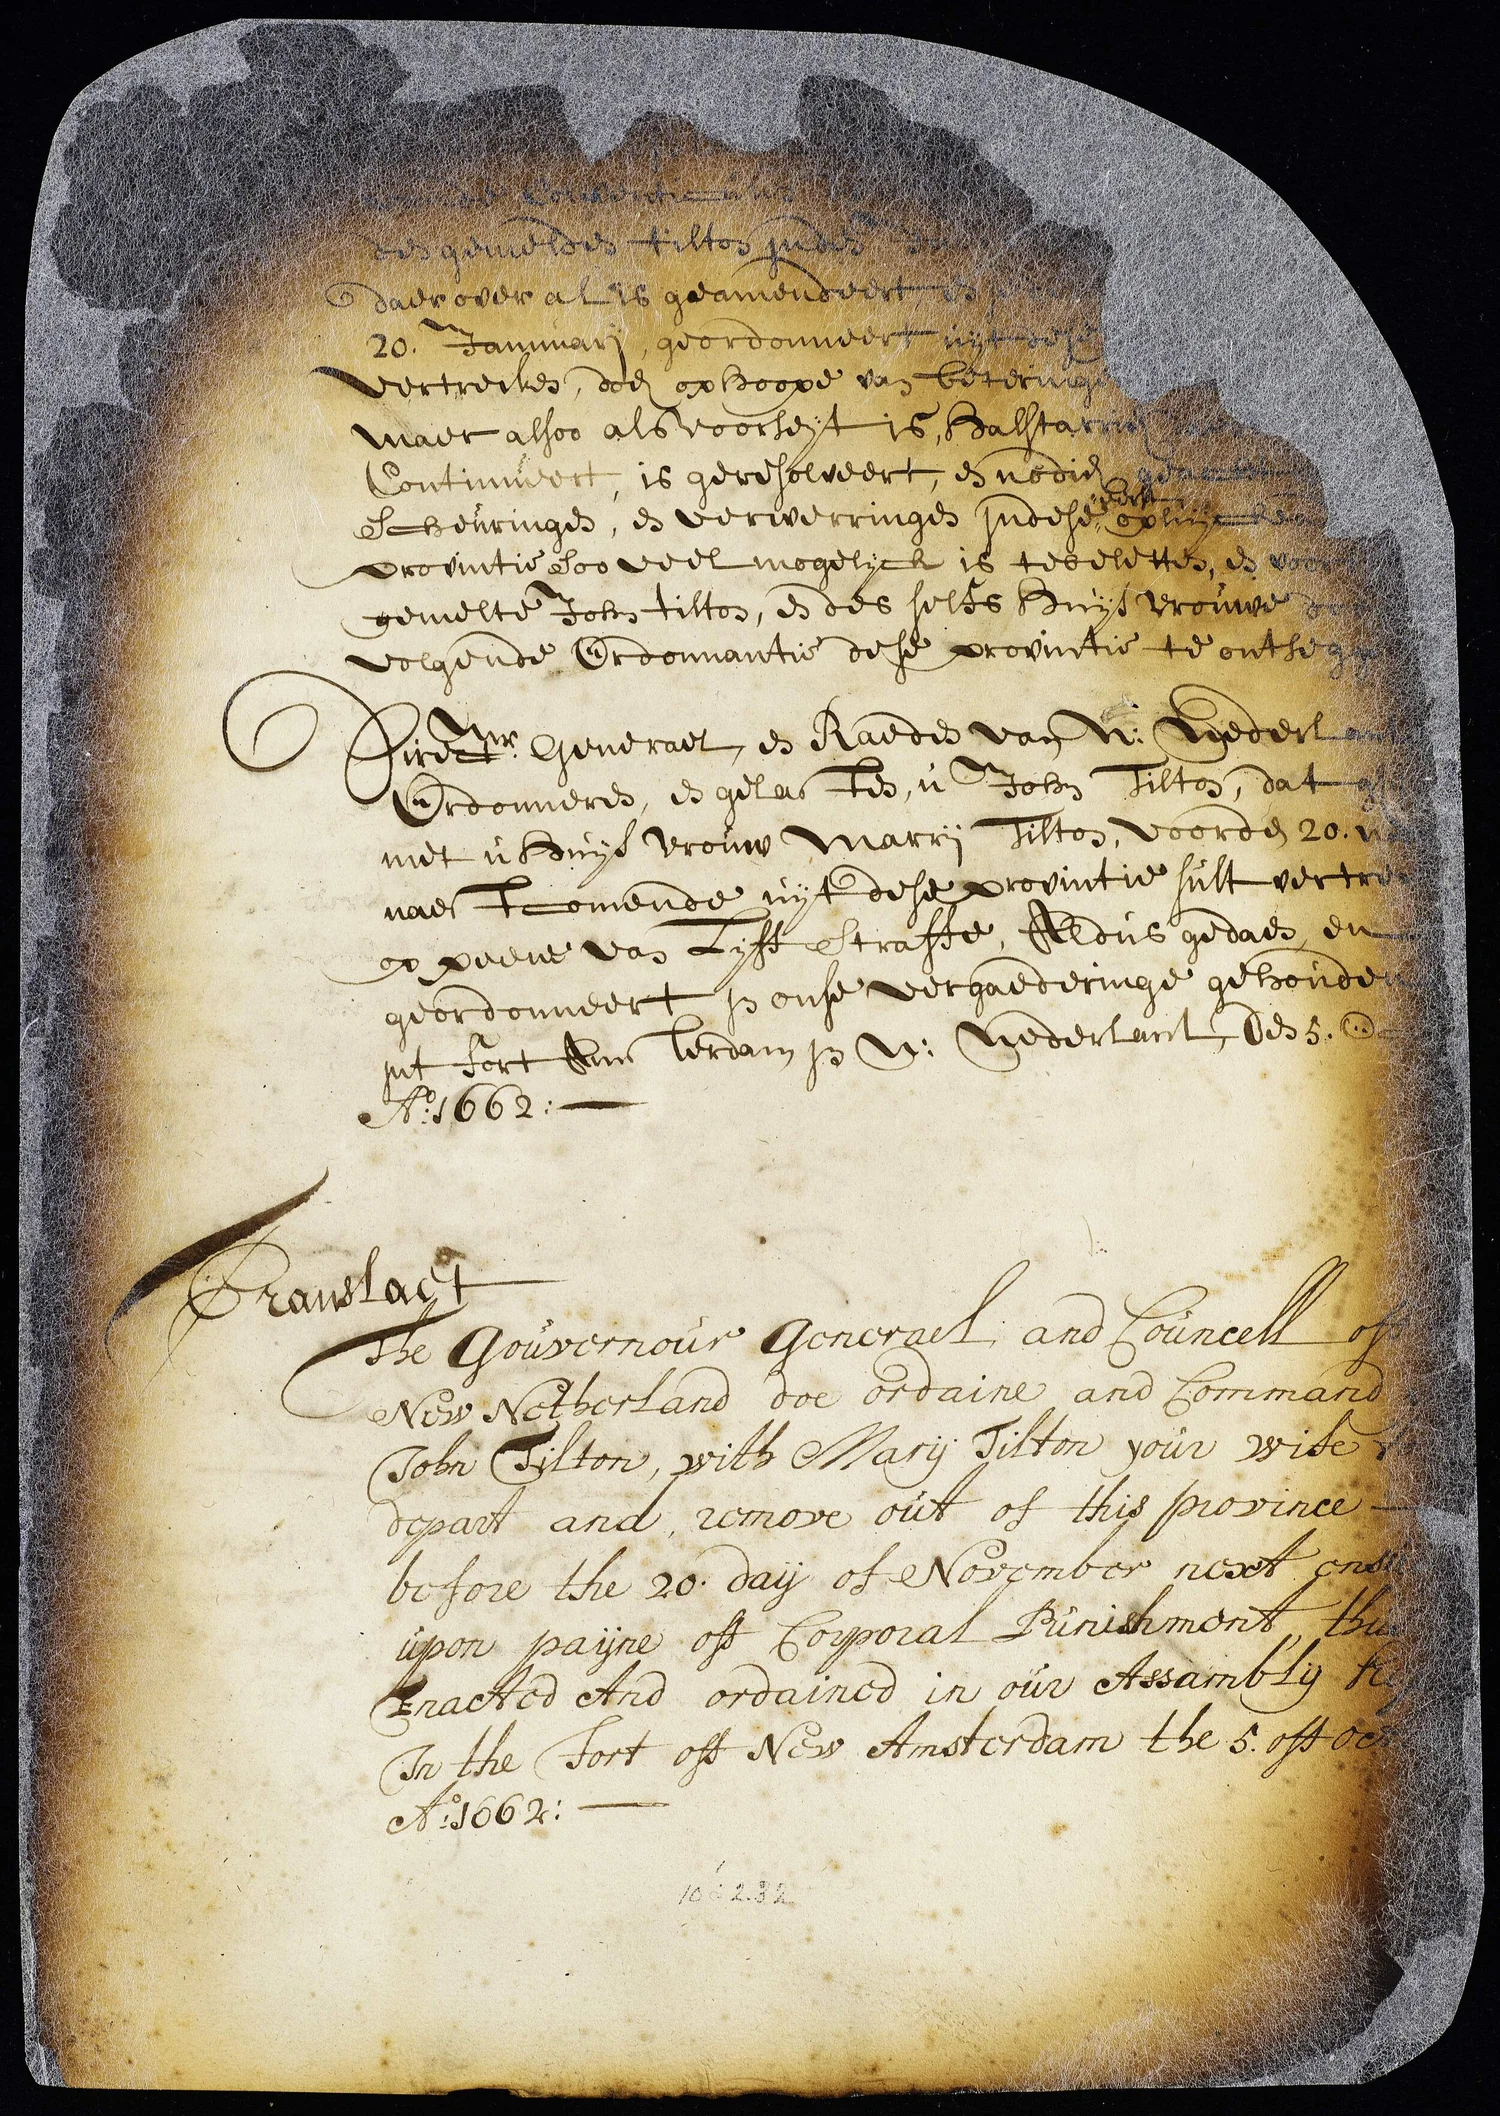 des gemelden tilton inden
daer over al is geamendeert en
20. January, geordonneert uyt dese
vertrecken, doch op hoope van beteringe
maer alsoo als voorseyt is, halstarrich
Continueert, is geresolveert, en nodich
eerst
Scheuringen, en verwerringen indese opluyckende
provintie soo veel mogelyck is te beletten, en voor
gemelte John tilton, en des selfs huys vrouwe
volgende Ordonnantie dese provintie te ontseggen
Directr. Generael, en Raeden van N: Nederlant
Ordonneren, en gelasten, u John Tilton, dat
met u huys vrouw Marry Tilton, voorden 20.
naestcomende uyt dese provintie sult vertrec
op peene van Lyff Straffe, Aldus gedaen, en
geordonneert in onse vergaederinge gehouden
int fort Amsterdam in N: Nederlant, den 5. Oc
Ao. 1662:—
Translaet
The Gouvernour Generael, and Councell off
New Netherland doe ordaine and Command
John Tilton, with Mary Tilton your wife
depart and remove out of this province —
before the 20. day of November next ensu
upon payne off Corporal Punishment, thus
Enacted And ordained in our Assambly
In the Fort off New Amsterdam the 5. off Oct
Ao: 1662: —